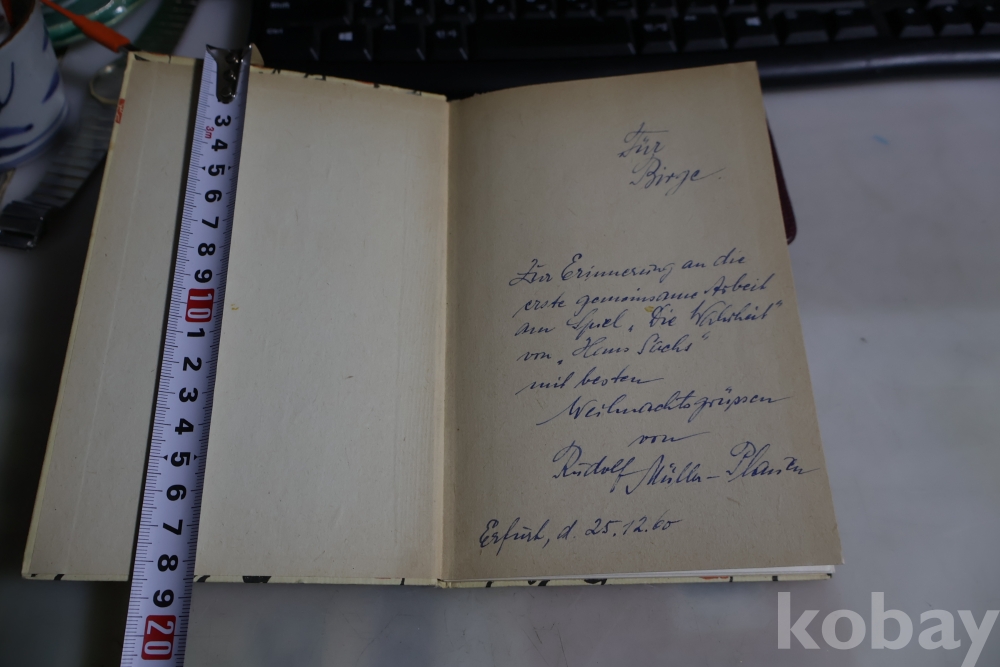 Für
Birge.
Zur Erinnerung an die
erste gemeinsame Arbeit
am Spiel „Die Wahrheit"
von „Hans Sachs"
mit besten
Weihnachtsgrüssen
von
Rudolf Müller-Plauen
Erfurt, d. 25.12.60
3m
3
4
5
6
7
8
9
10
1
2
3
4
5
6
7
8
9
20
kobay